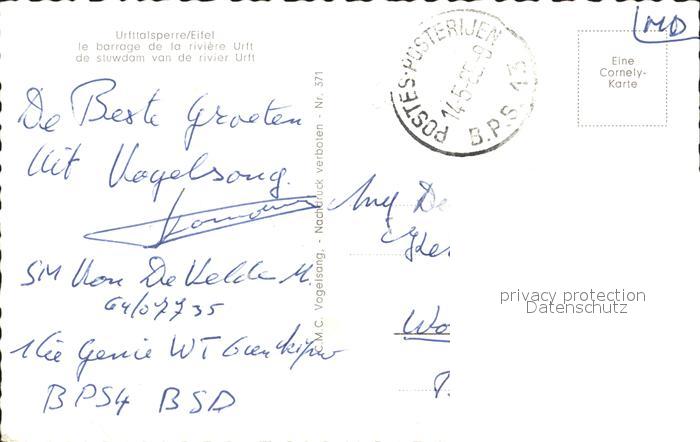 Urfttalsperre/Eifel
le barrage de la rivière Urft
de stuwdam van de rivier Urft
MD
POSTES-POSTERIJEN
14-5-65-9
B.P.S. 15
Eine
Cornely-
Karte
De Beste Groeten
Uit Vogelsang.
C.M.C. Vogelsang. - Nachdruck verboten - Nr. 371
SM Van De Velde M.
64/07735
1 Cie Genie WT
BPS4 BSD
De
Wo
privacy protection
Datenschutz